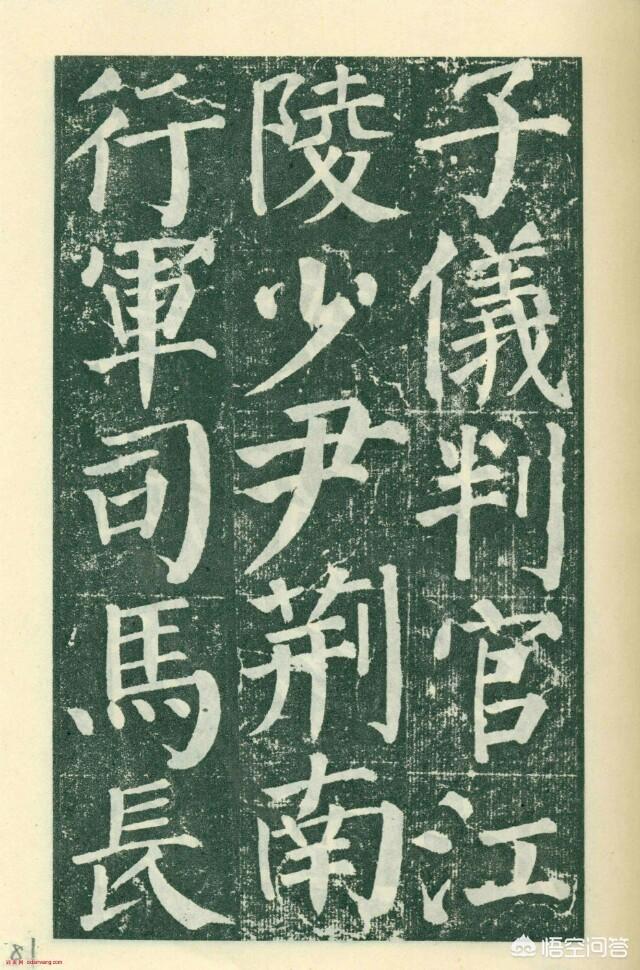 子儀判官江
陵少尹荊南
行軍司馬長
81
悟空问答